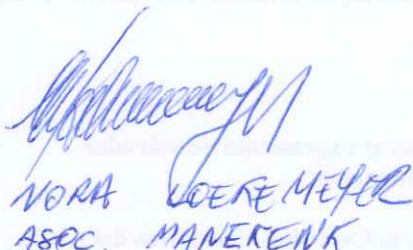 NORA LOEKEMEYER
ASOC. MANEKENK